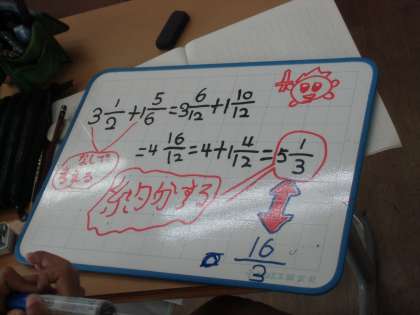 3 1/2 + 1 5/6 = 3 6/12 + 1 10/12
= 4 16/12 = 4 + 1 4/12 = 5 1/3
考える
約分する
= 16/3